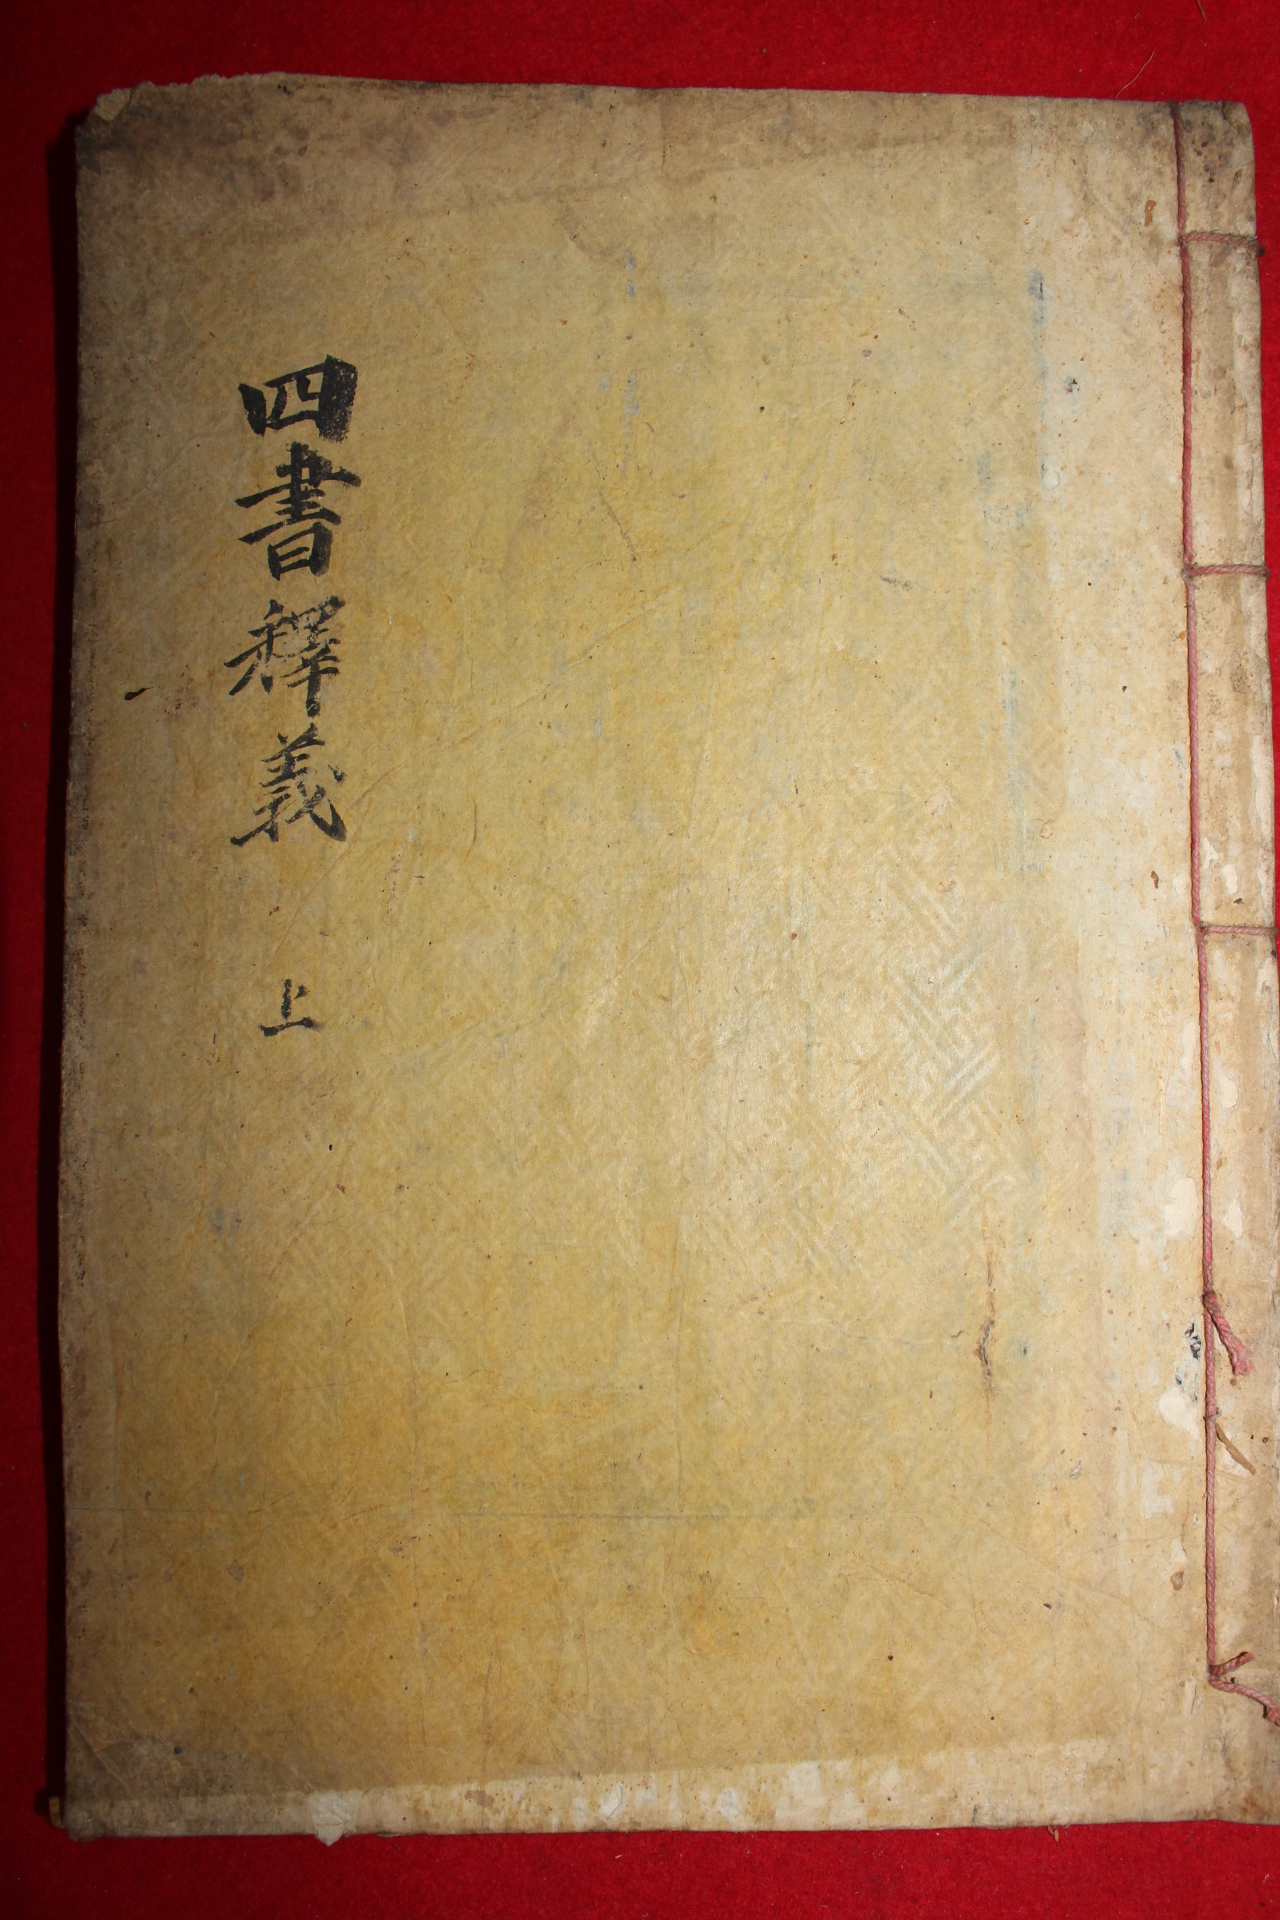 四書釋義 上